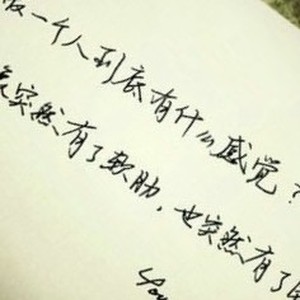 一个人到底有什么感觉？
突然有了软肋，也突然有了